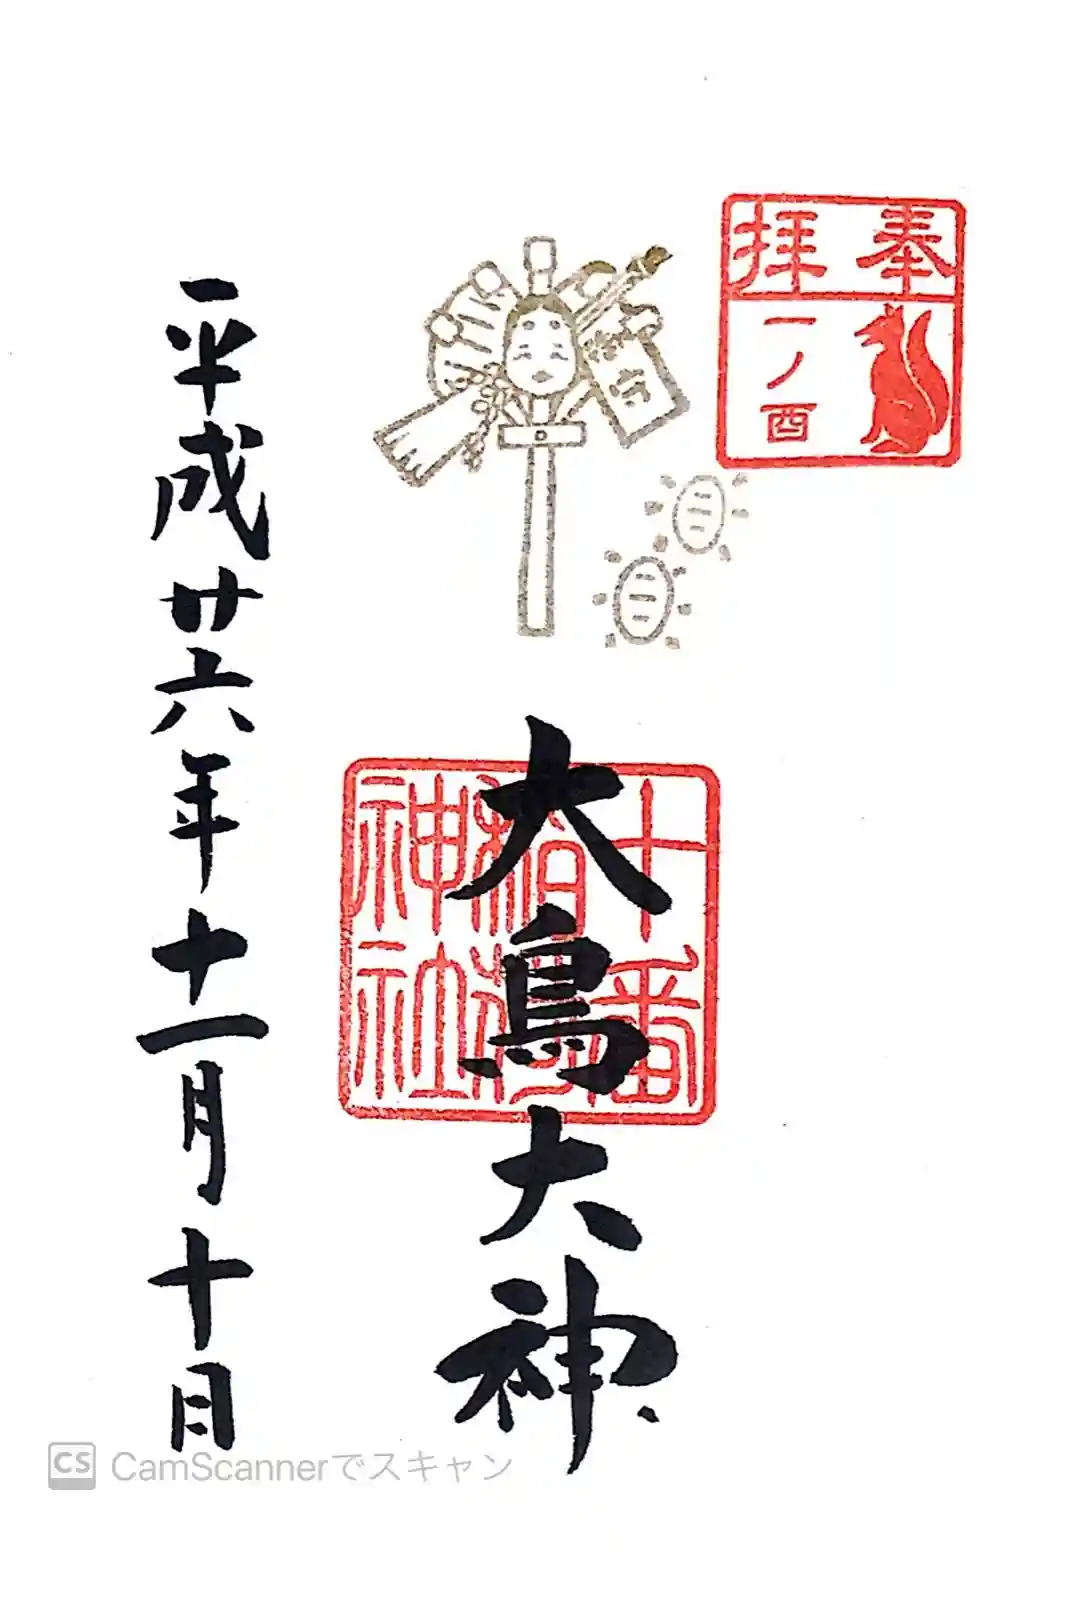 奉拝
一ノ酉
御守
大鳥大神
十番稲荷神社
平成廿六年十一月十日
CS CamScannerでスキャン